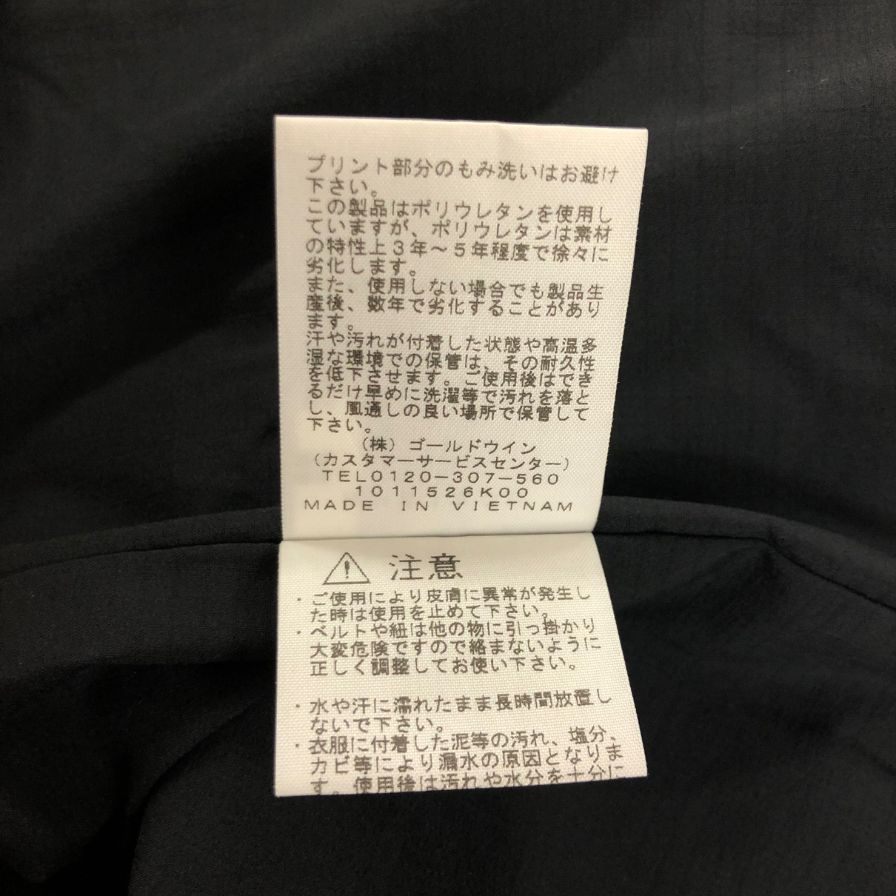 プリント部分のもみ洗いはお避け
下さい。
この製品はポリウレタンを使用し
ていますが、ポリウレタンは素材
の特性上3年～5年程度で徐々に
劣化します。
また、使用しない場合でも製品生
産後、数年で劣化することがあり
ます。
汗や汚れが付着した状態や高温多
湿な環境での保管は、その耐久性
を低下させます。ご使用後はでき
るだけ早めに洗濯等で汚れを落と
し、風通しの良い場所で保管して
下さい。
（株）ゴールドウイン
（カスタマーサービスセンター）
TEL0120-307-560
1011526K00
MADE IN VIETNAM
注意
・ご使用により皮膚に異常が発生し
た時は使用を止めて下さい。
・ベルトや紐は他の物に引っ掛かり
大変危険ですので絡まないように
正しく調整してお使い下さい。
・水や汗に濡れたまま長時間放置し
ないで下さい。
・衣服に付着した泥等の汚れ、塩分、
カビ等により漏水の原因となりま
す。使用後は汚れや水分を十分に